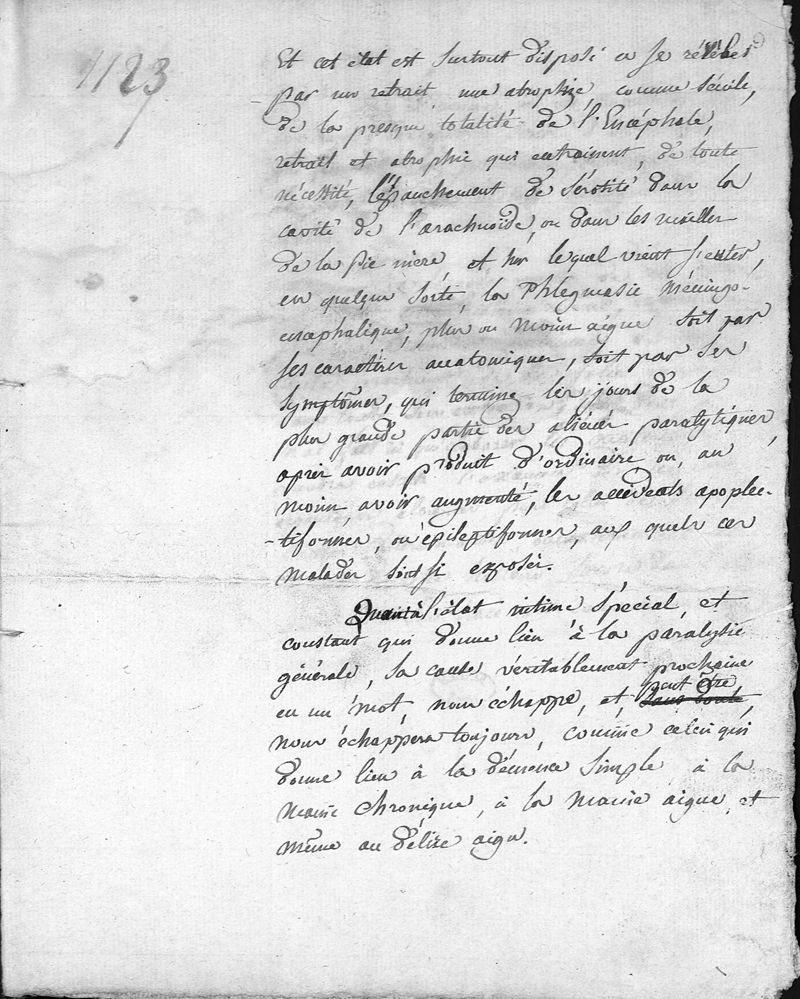 1123
Et cet état est surtout disposé a se révéler
par un retrait une atrophie comme sénile,
de la presque totalité de l'Encéphale,
retrait et atrophie qui entrainent, de toute
nécessité, l'épanchement de sérosité dans la
cavité de l'arachnoïde, ou dans les mailles
de la Pie mère, et sur lequel vient s'enter,
en quelque sorte, la Phlegmasie méningo-
encéphalique, plus ou moins aigue soit par
ses caractères anatomiques, soit par ses
symptômes, qui termine les jours de la
plus grande partie des aliénés paralytiques,
après avoir produit d'ordinaire ou, au
moins avoir augmenté, les accidents apoplec-
-tiformes, ou épileptiformes, aux quels ces
malades sont si exposés.
Quant à l'état intime spécial, et
constant qui donne lieu à la paralysie
générale, sa cause véritablement prochaine
peut être
en un mot, nous échappe, et, sans doute,
nous échappera toujours, comme celui qui
donne lieu à la démence simple à la
manie chronique, à la manie aigue et
même au délire aigu.